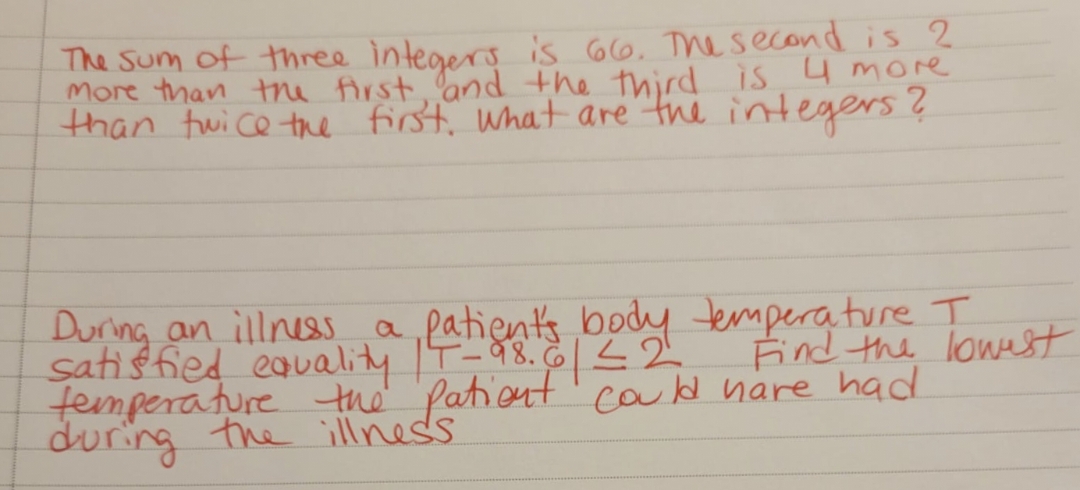 The sum of three integers is 66. The second is 2
more than the first, and the third is 4 more
than twice the first. What are the integers?
During an illness a patient's body temperature T
satisfied equality |T-98.6| ≤ 2 Find the lowest
temperature the patient could have had
during the illness